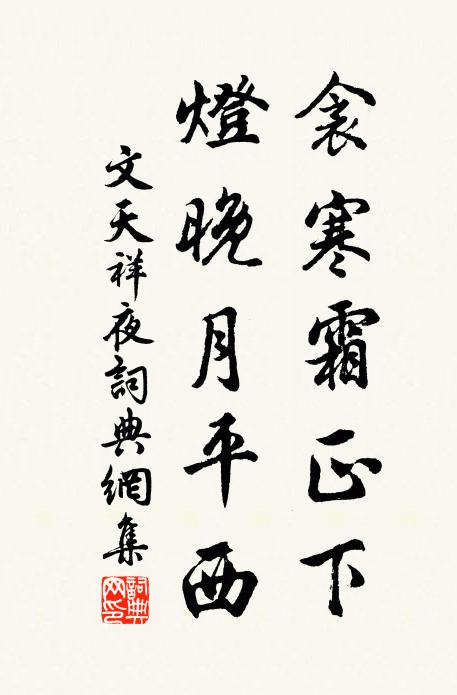 衾寒霜正下
燈晚月平西
文天祥夜詞典網集
詞典網印